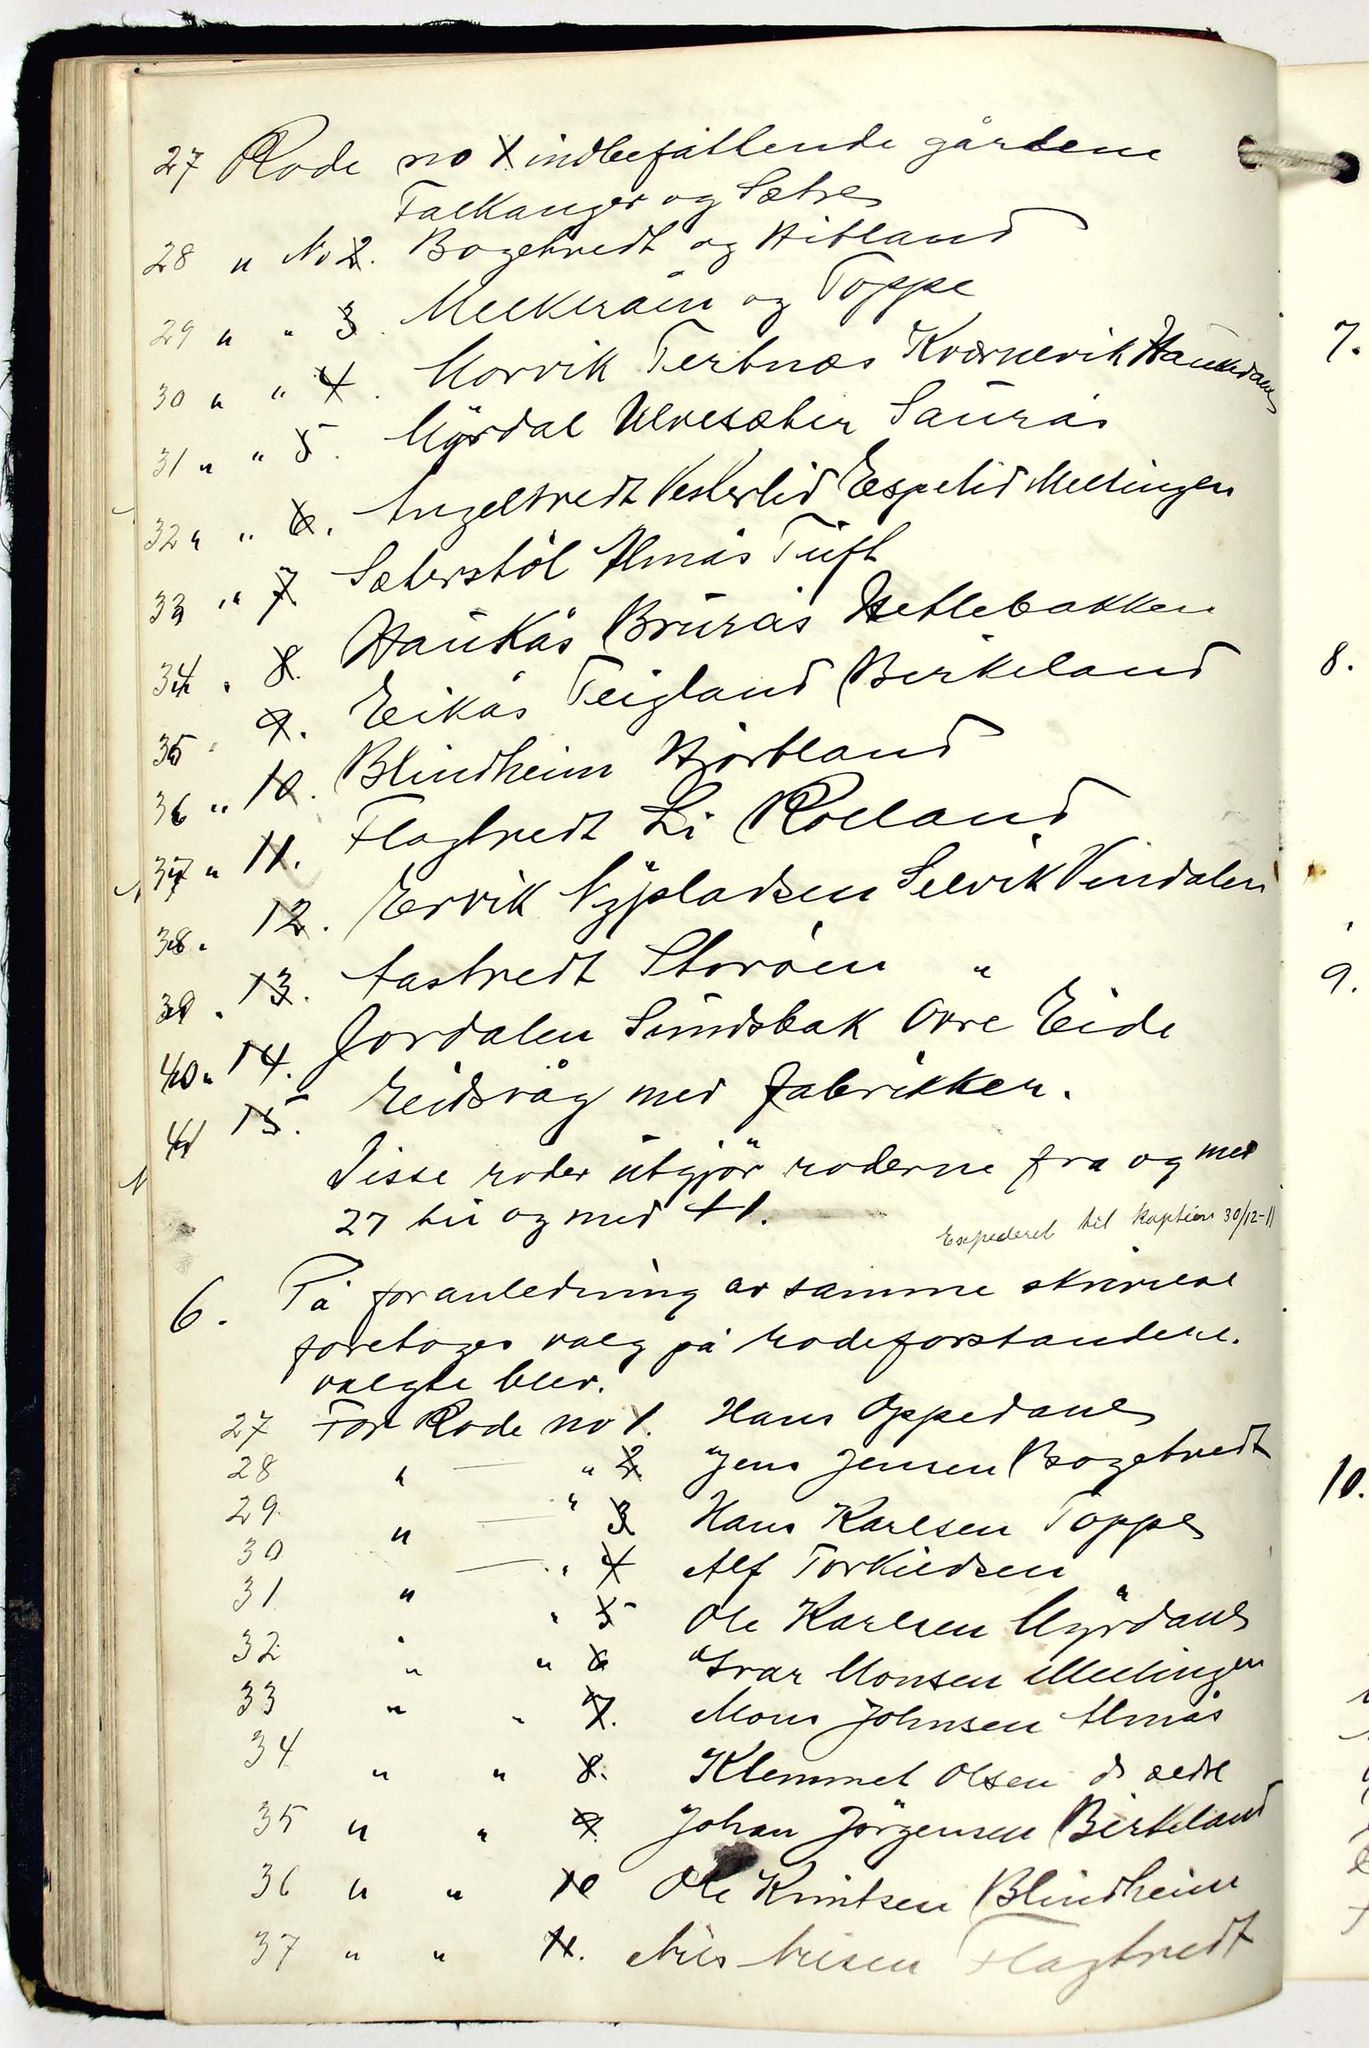 27 Rode no 1 indbefattende gårdene
Falkanger og Sætre
28 " No 2. Bogetvedt og Hitland
29 " " 3. Melkeråen og Toppe
30 " " 4. Morvik Tertnæs Kværnevik Haukedalen
31 " " 5. Myrdal Ulvesæter Saurås
32 " " 6. Angeltvedt Vesterlid Espelid Mellingen
33 " " 7 Sæterstöl Almås Tuft
34 " 8. Haukås Brurås Hetlebakken
35 " 9. Eikås Teigland Birkeland
36 " 10. Blindheim Hjortland
37 " 11. Flagtvedt Li Rolland
38 " 12. Ervik Nypladsen Selvik Vindalen
39 " 13. Aastvedt Storöen "
40 " 14. Jordalen Sundsbak Övre Eide
41 15. Eidsvåg med fabrikken.
Disse roder utgjör roderne fra og med
27 til og med 41.
Expederet til kaptien 30/12-11
6. På foranledning av samme skrivelse
foretoges valg på rodeforstandere.
valgte blev.
27 For Rode no 1. Hans Oppedal
28 " — " 2 Jens Jensen Bogetvedt
29 " — " 3 Hans Karlsen Toppe
30 — " 4 Alf Torkildsen
31 " " 5 Ole Karlsen Myrdal
32 " " " 6 Ivar Monsen Mellingen
33 " " 7. Mons Johnsen Almås
34 " " 8. Klemmet Olsen
35 " " 9. Johan Jörgensen Birkeland
36 " " 10 Ole Knutsen Blindheim
37 " " 11. Nils Nilsen Flagtvedt
7.
8.
9.
10.